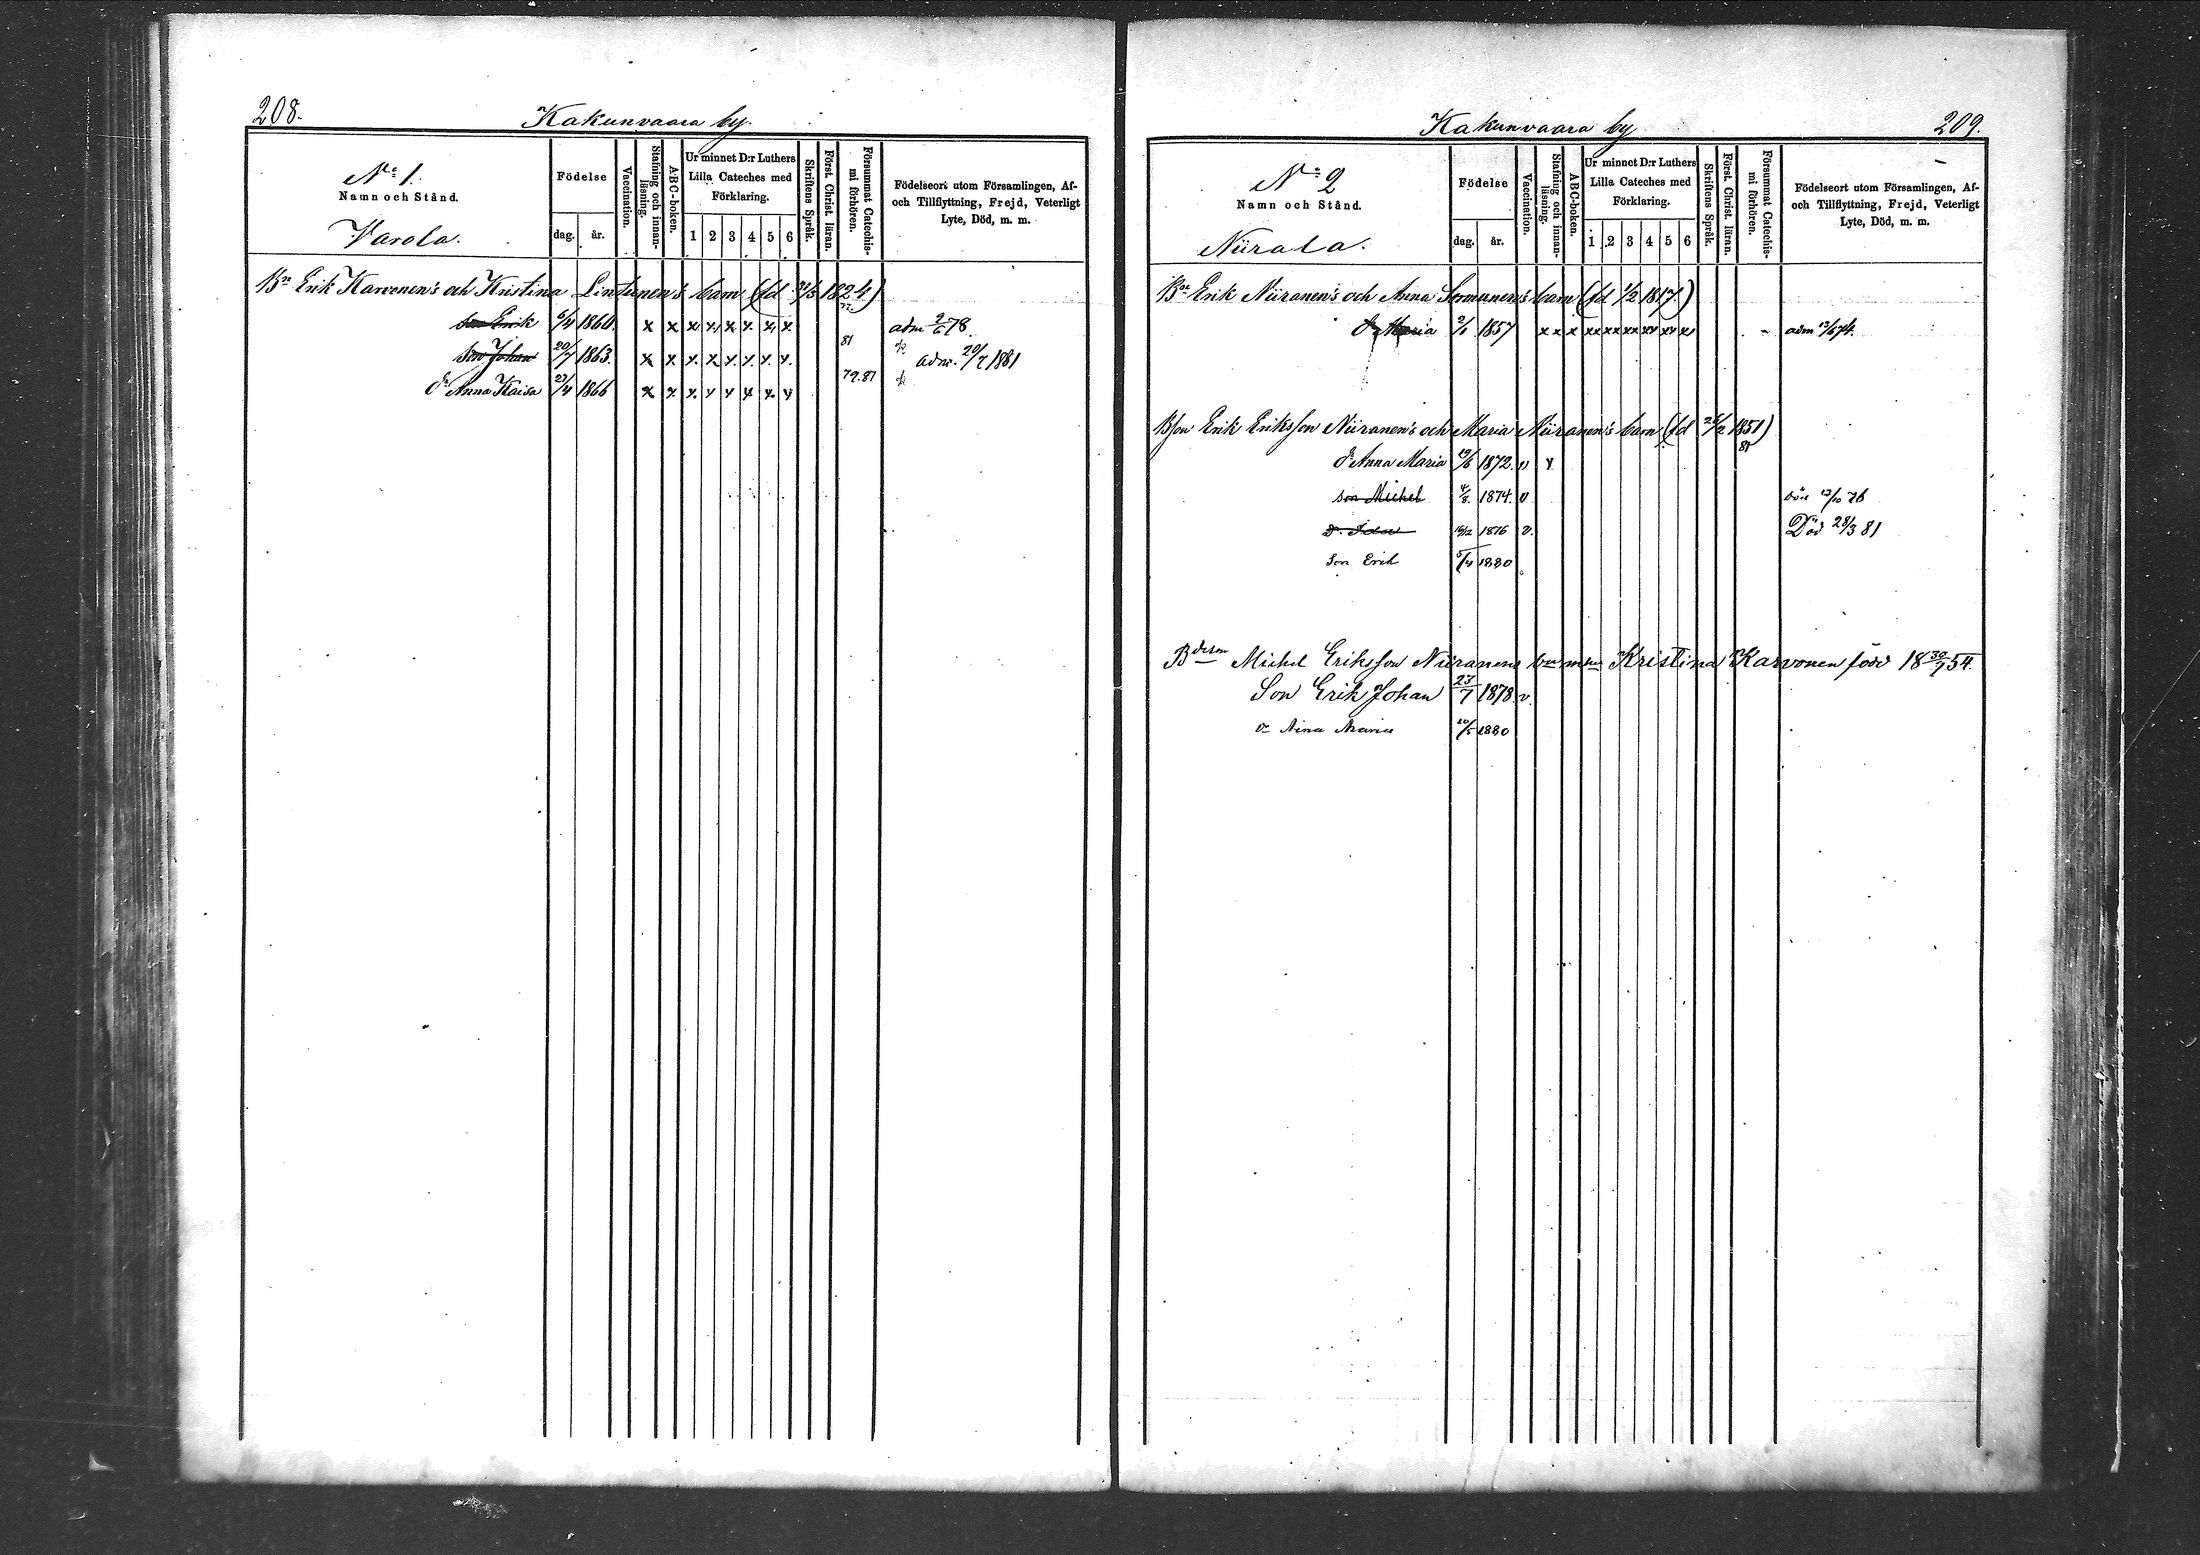 208.
Kakunvaara by.
No 1.
Namn och Stånd.
Varola.
Födelse
dag. år.
Vaccination.
Stafning och innan-
läsning.
ABC-boken.
Ur minnet D:r Luthers
Lilla Cateches med
Förklaring.
1 2 3 4 5 6
Skriftens Språk.
Först. Christ. läran.
Försummat Catechis-
mi förhören.
Födelseort utom Församlingen, Af-
och Tillflyttning, Frejd, Veterligt
Lyte, Död, m. m.
Bn Erik Karvonen's och Kristina Lintunen's barn (fd /5 1824)
son Erik 6/4 1860. x x x x x x x x adm 2/6 78.
son Johan 20/7 1863. x x x x x x x x 81 adm. 20/7 1881
dr Anna Kaisa 23/4 1866 x x x x x x x x 79.81
Kakunvaara by
209.
No 2
Namn och Stånd.
Niirala.
Födelse
dag. år.
Vaccination.
Stafning och innan-
läsning.
ABC-boken.
Ur minnet D:r Luthers
Lilla Cateches med
Förklaring.
1 2 3 4 5 6
Skriftens Språk.
Först. Christ. läran.
Försummat Catechis-
mi förhören.
Födelseort utom Församlingen, Af-
och Tillflyttning, Frejd, Veterligt
Lyte, Död, m. m.
Bn Erik Niiranen's och Anna Sormunen's barn (fd 1/2 1817.)
dr Maria 2/1 1857 x x x xx xx xx xx xx x - adm 13/6 74.
Bson Erik Eriksson Niiranen's och Maria Niiranen's barn (fd /2 1851)
81
dr Anna Maria 19/6 1872. v x
son Michel 4/8 1874. v död 13/10 76
Dr. Ida 16/12 1876 v. Död 28/3 81
Son Erik 5/4 1880
Bdeson Michel Eriksson Niiranens Kristina Karvonen född 18 30/7 54.
Son Erik Johan 23/7 1878. v.
dr Aina Maria 20/5 1880